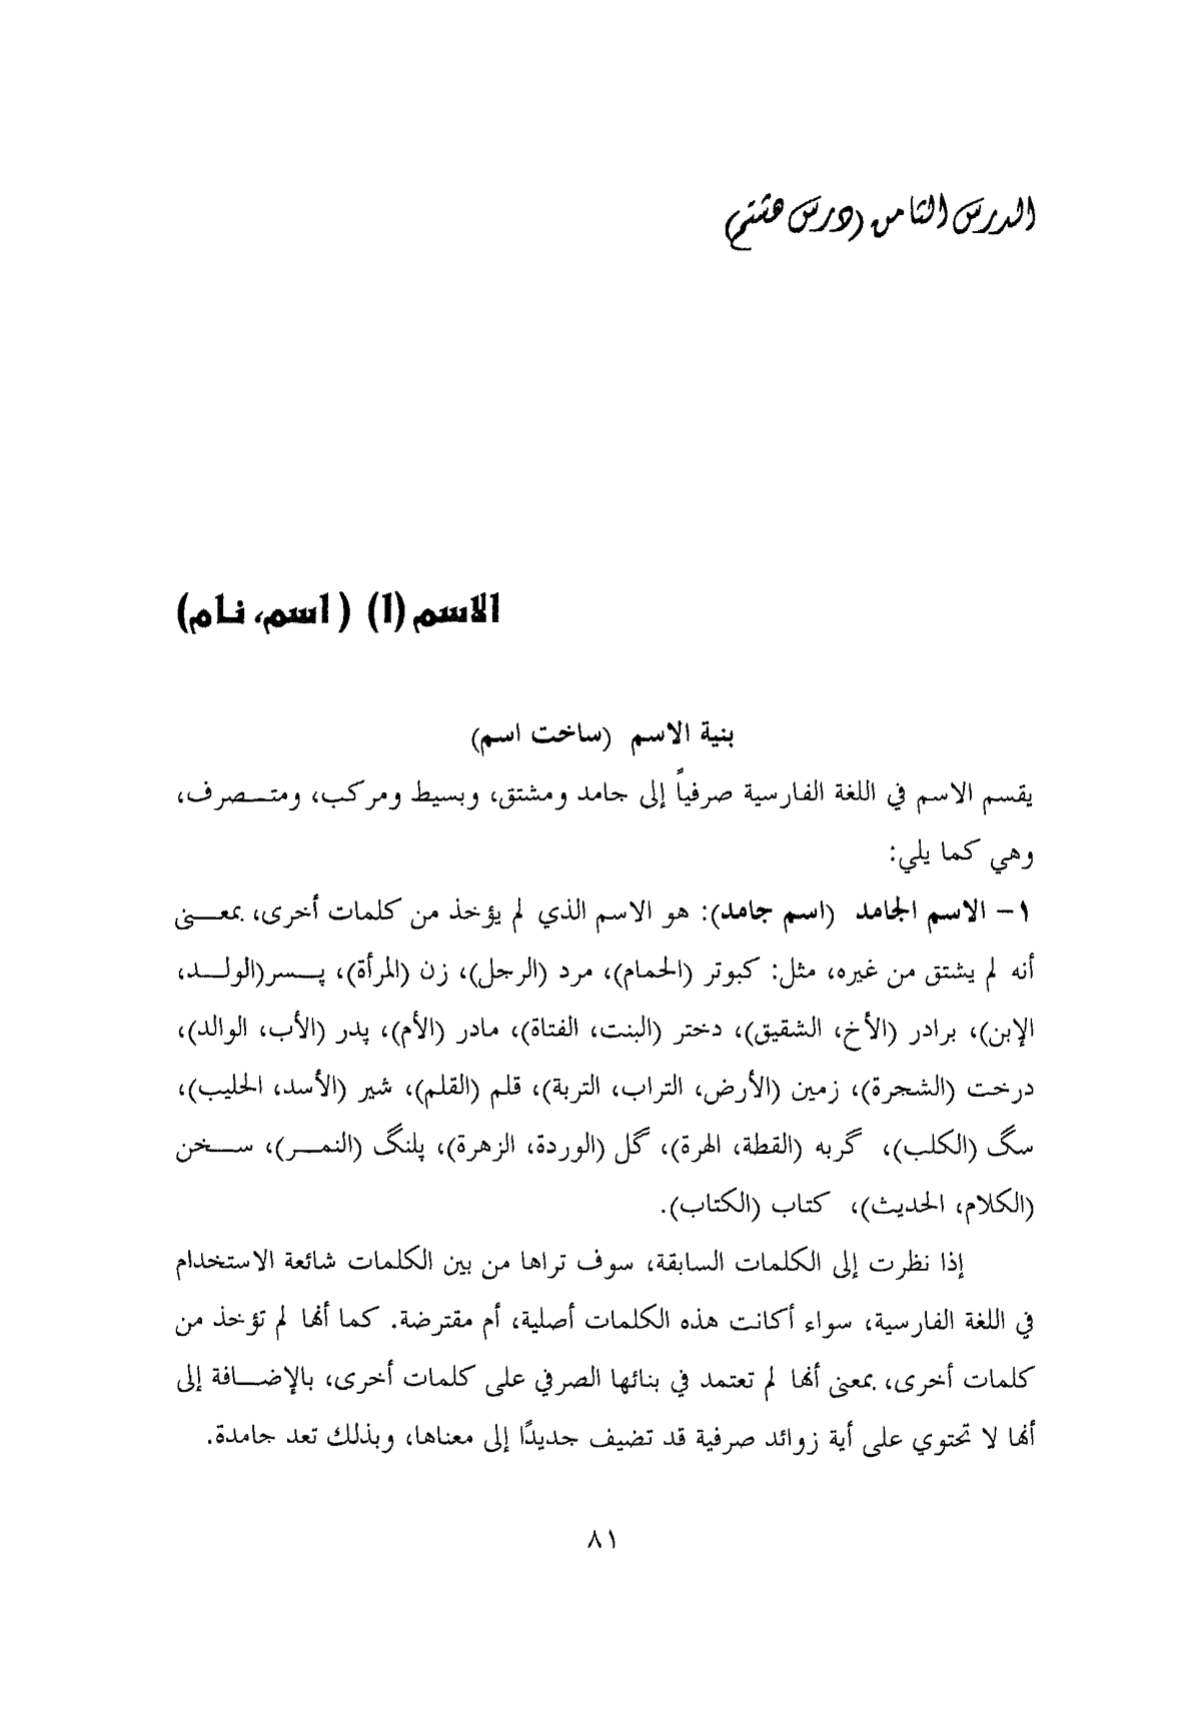 الدرس الثامن (درس هشتم)
الاسم (١) (اسم، نام)
بنية الاسم (ساخت اسم)
يقسم الاسم في اللغة الفارسية صرفياً إلى جامد ومشتق، وبسيط ومركب، ومتصرف،
وهي كما يلي:
١- الاسم الجامد (اسم جامد): هو الاسم الذي لم يؤخذ من كلمات أخرى، بمعنى
أنه لم يشتق من غيره، مثل: كبوتر (الحمام)، مرد (الرجل)، زن (المرأة)، پسر(الولد،
الإبن)، برادر (الأخ، الشقيق)، دختر (البنت، الفتاة)، مادر (الأم)، پدر (الأب، الوالد)،
درخت (الشجرة)، زمين (الأرض، التراب، التربة)، قلم (القلم)، شير (الأسد، الحليب)،
سگ (الكلب)، گربه (القطة، الهرة)، گل (الوردة، الزهرة)، پلنگ (النمر)، سخن
(الكلام، الحديث)، كتاب (الكتاب).
إذا نظرت إلى الكلمات السابقة، سوف تراها من بين الكلمات شائعة الاستخدام
في اللغة الفارسية، سواء أكانت هذه الكلمات أصلية، أم مقترضة. كما أنها لم تؤخذ من
كلمات أخرى، بمعنى أنها لم تعتمد في بنائها الصرفي على كلمات أخرى، بالإضافة إلى
أنها لا تحتوي على أية زوائد صرفية قد تضيف جديدًا إلى معناها، وبذلك تعد جامدة.
٨١